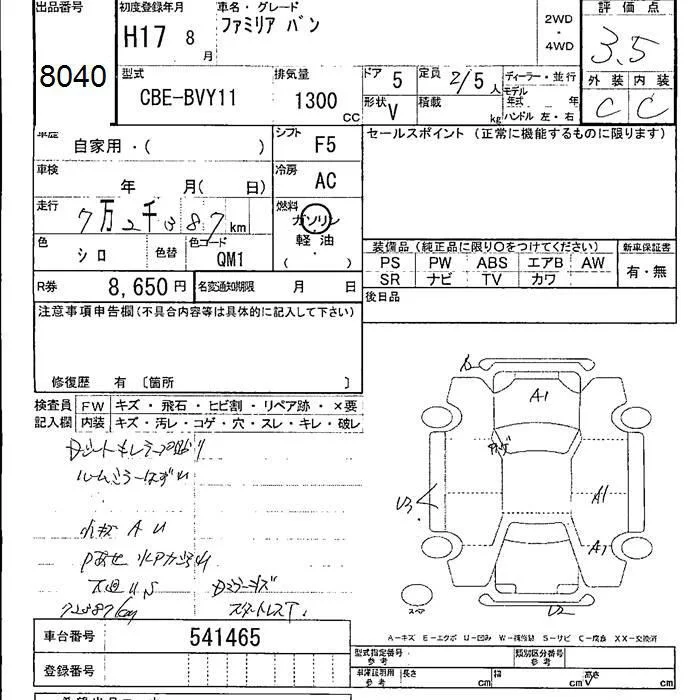 出品番号 初度登録年月 車名・グレード 評価点
H17 8月 ファミリア バン 2WD・4WD 3.5
8040 型式 排気量 ドア 5 定員 2/5人 ディーラー・並行 外装 内装
CBE-BVY11 1300CC 形状 V 積載 kg モデル年式 年 ハンドル 左・右 C C
車歴 自家用・( ) シフト F5 セールスポイント (正常に機能するものに限ります)
車検 年 月( 日) 冷房 AC
走行 7万2千387km 燃料 ガソリン 軽油 ( )
色 シロ 色替 色コード QM1 装備品 (純正品に限り○をつけてください) 新車保証書
PS PW ABS エアB AW 有・無
SR ナビ TV カワ
R券 8,650円 名変通知期限 月 日 後日品
注意事項申告欄(不具合内容等は具体的に記入して下さい)
修復歴 有 〔箇所 〕
検査員 FW キズ・飛石・ヒビ割・リペア跡・×要
記入欄 内装 キズ・汚レ・コゲ・穴・スレ・キレ・破レ
A1
ルームミラーはずれ
U3 A1
A U
A1
Dミラーキズ
72387km スタートレスT.
スペア U2
A-キズ E-エクボ U-凹み W-補修跡 S-サビ C-腐食 XX-交換済
車台番号 541465
型式指定番号 参考 類別区分番号 参考
登録番号 車庫証明用 参考 長さ cm 幅 cm 高さ cm